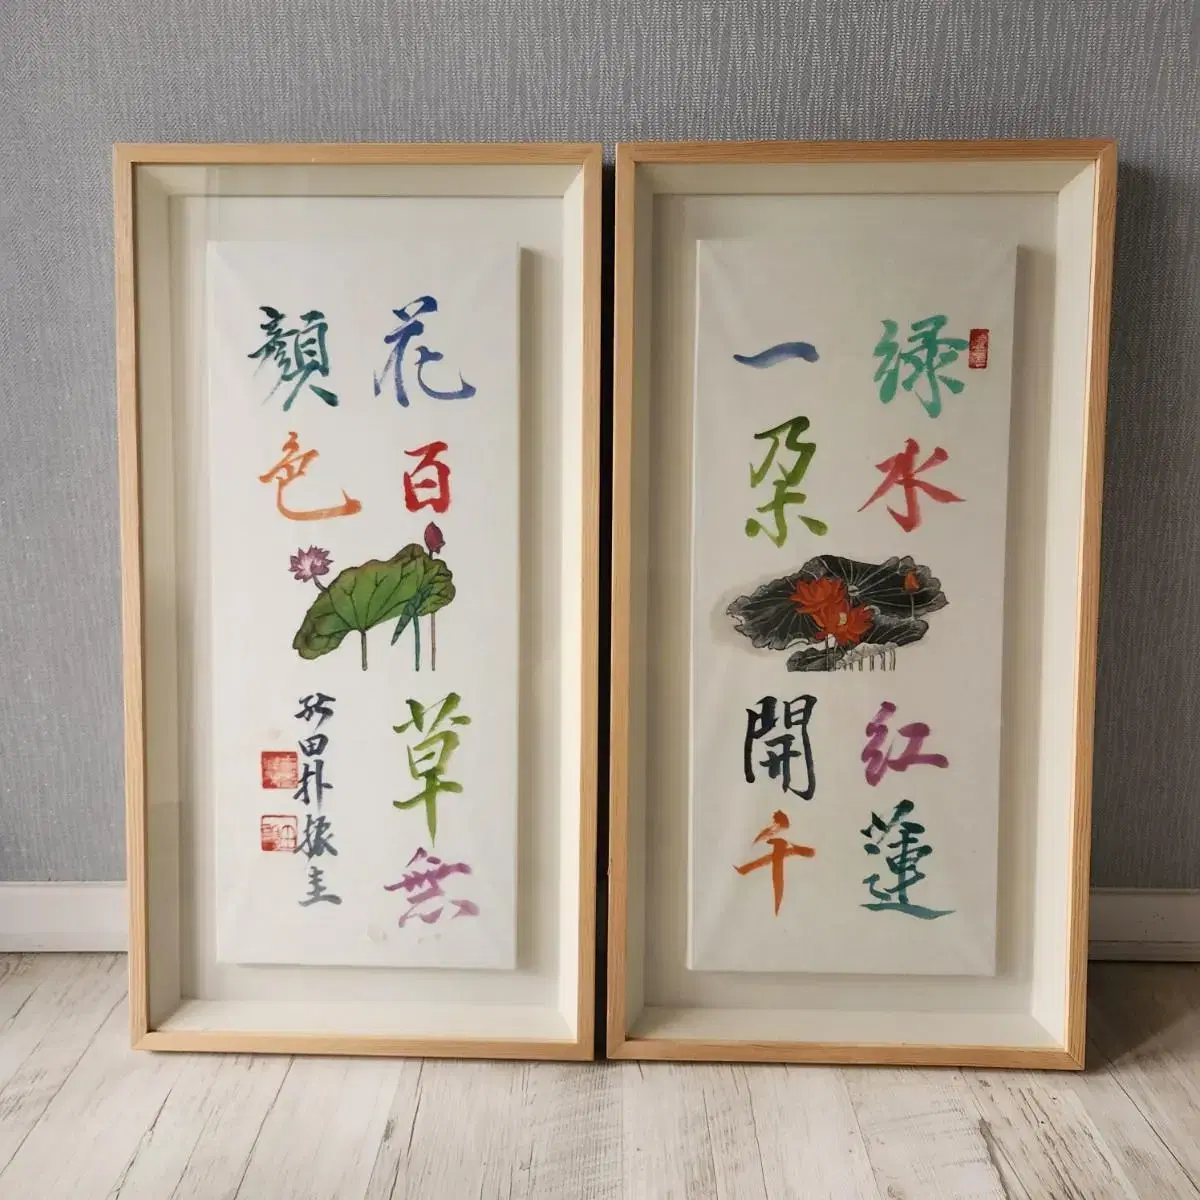 綠水紅蓮
一朵開千
花百草無
顏色
田朴振圭